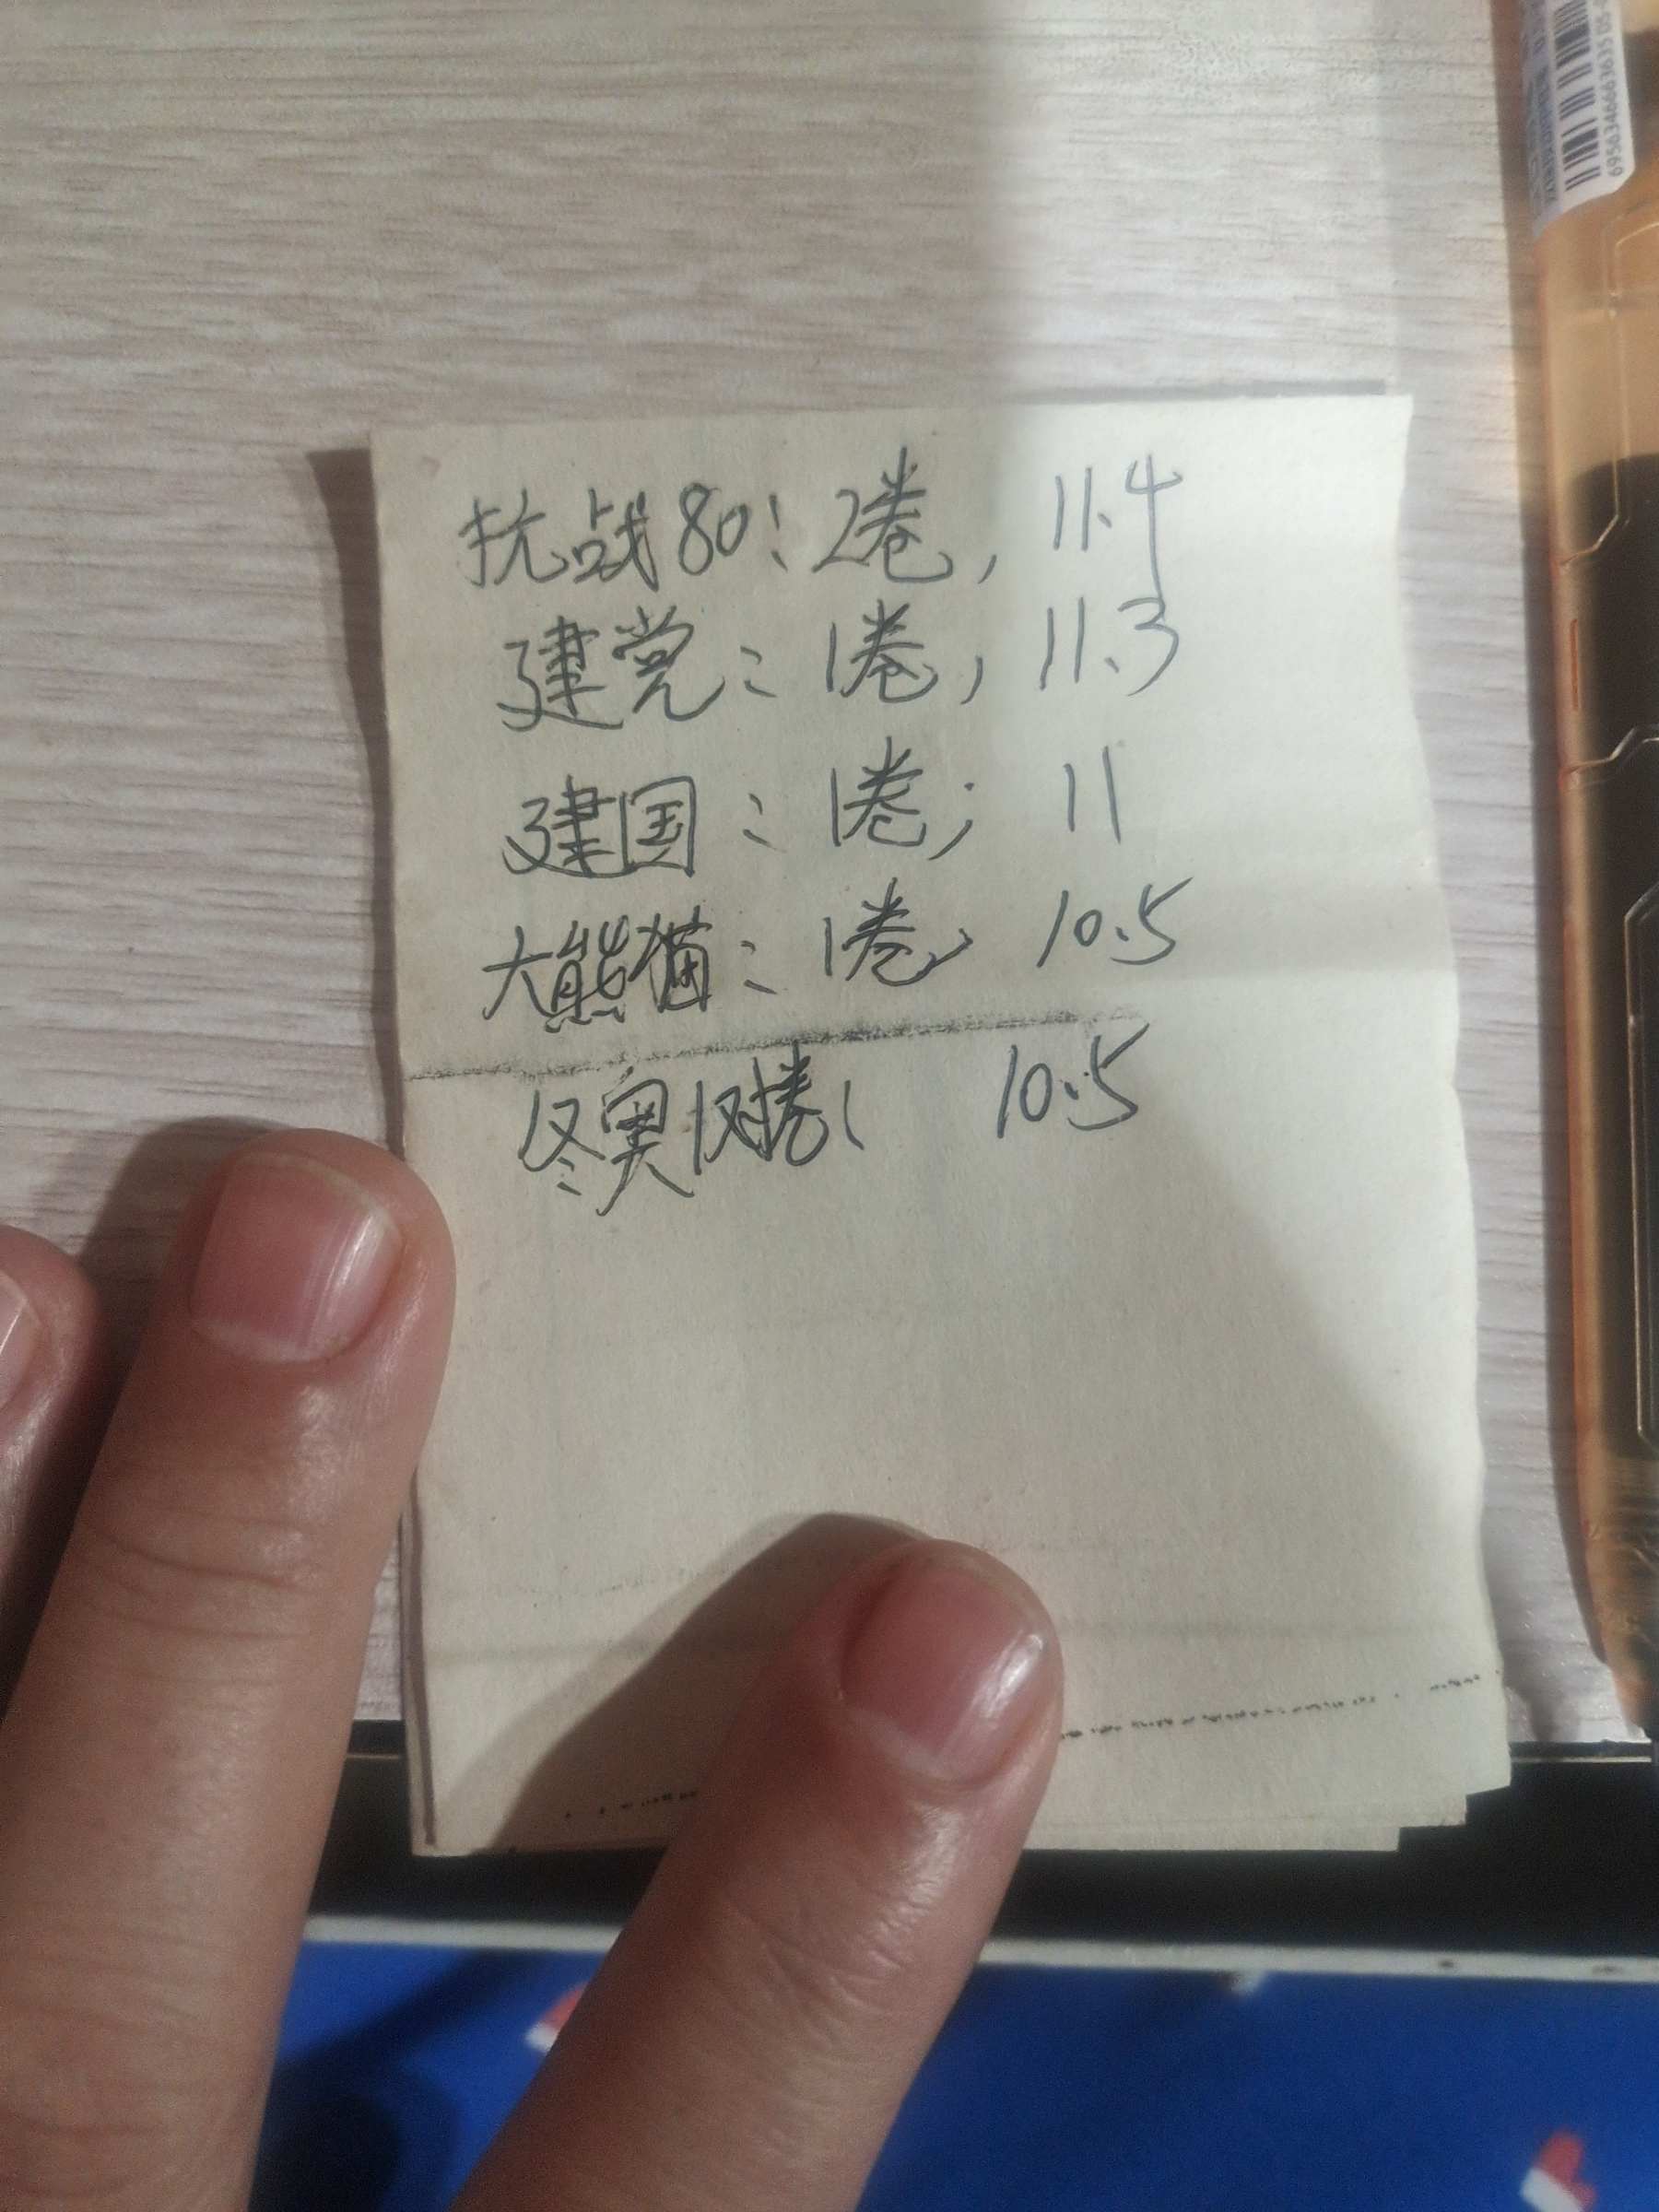 抗战80: 2卷, 11.4
建党: 1卷, 11.3
建国: 1卷; 11
大熊猫: 1卷, 10.5
冬奥 10.5
6958346663635